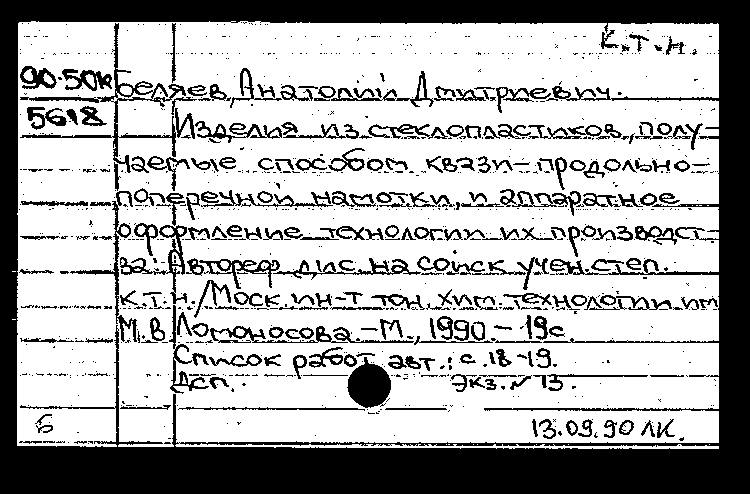 к.т.н.
90-50к Беляев, Анатолий Дмитриевич.
5618 Изделия из стеклопластиков, полу-
чаемые способом квази-продольно-
поперечной намотки, и аппаратное
оформление технологии их производст-
ва: Автореф. дис. на соиск учен. степ.
к.т.н. / Моск. ин-т тон. хим. технологии им
М.В. Ломоносова. - М., 1990. - 19с.
Список работ авт.: с. 18-19.
Дсп. Экз. № 13.
Б 13.09.90 ЛК.